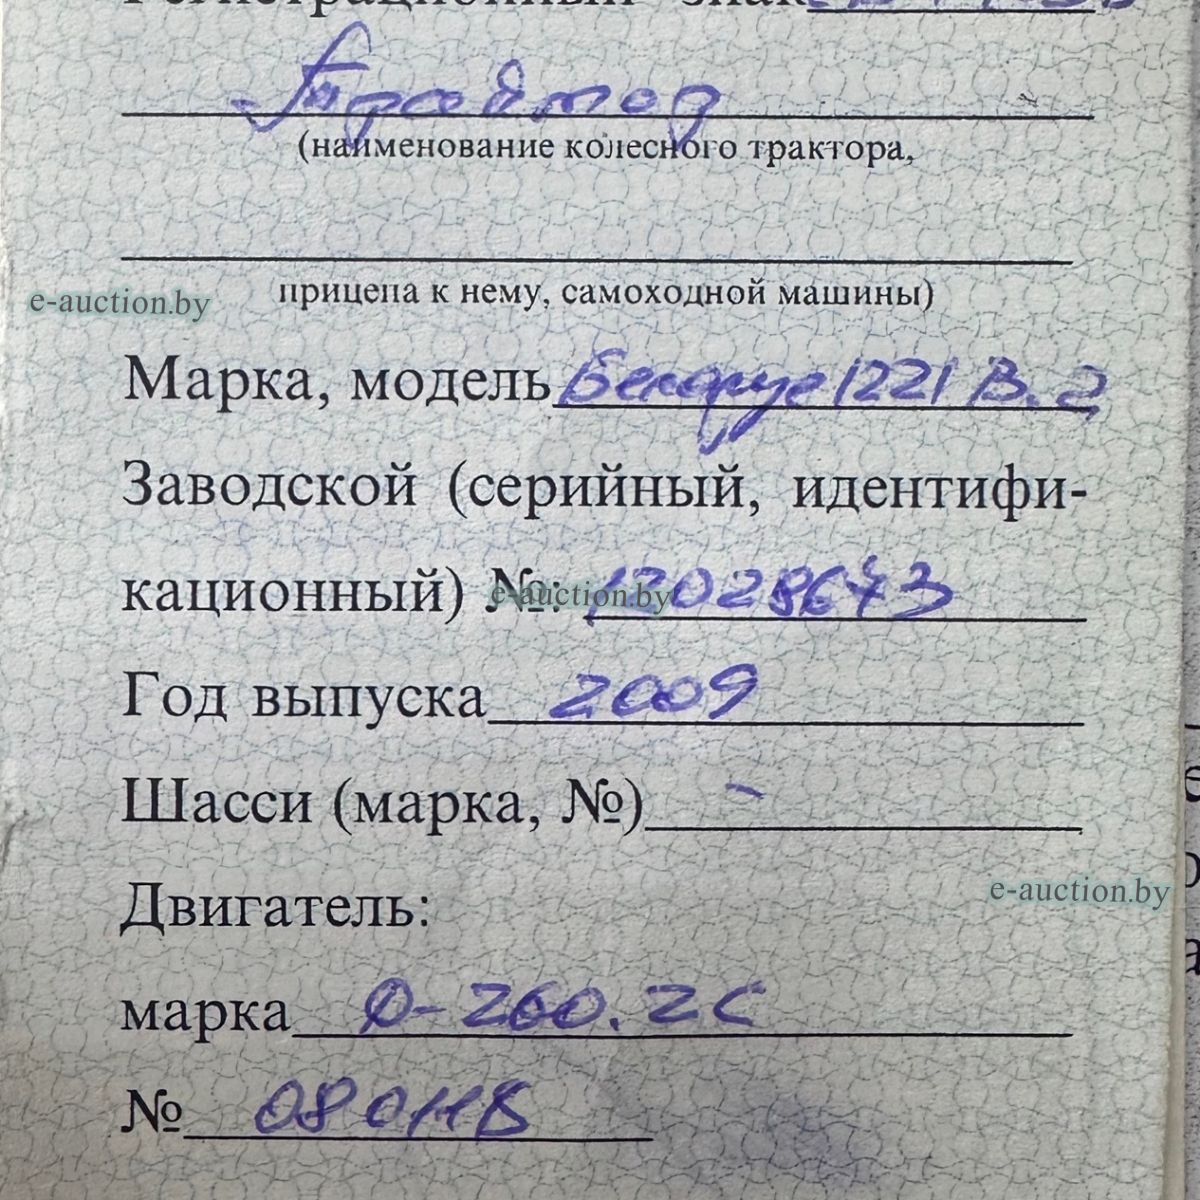 Регистрационный знак
Трактор
(наименование колесного трактора,
прицепа к нему, самоходной машины)
e-auction.by
Марка, модель Беларус 1221 В.2
Заводской (серийный, идентифи-
кационный) №: 12028643
e-auction.by
Год выпуска 2009
Шасси (марка, №) -
e-auction.by
Двигатель:
марка Д-260.2С
№